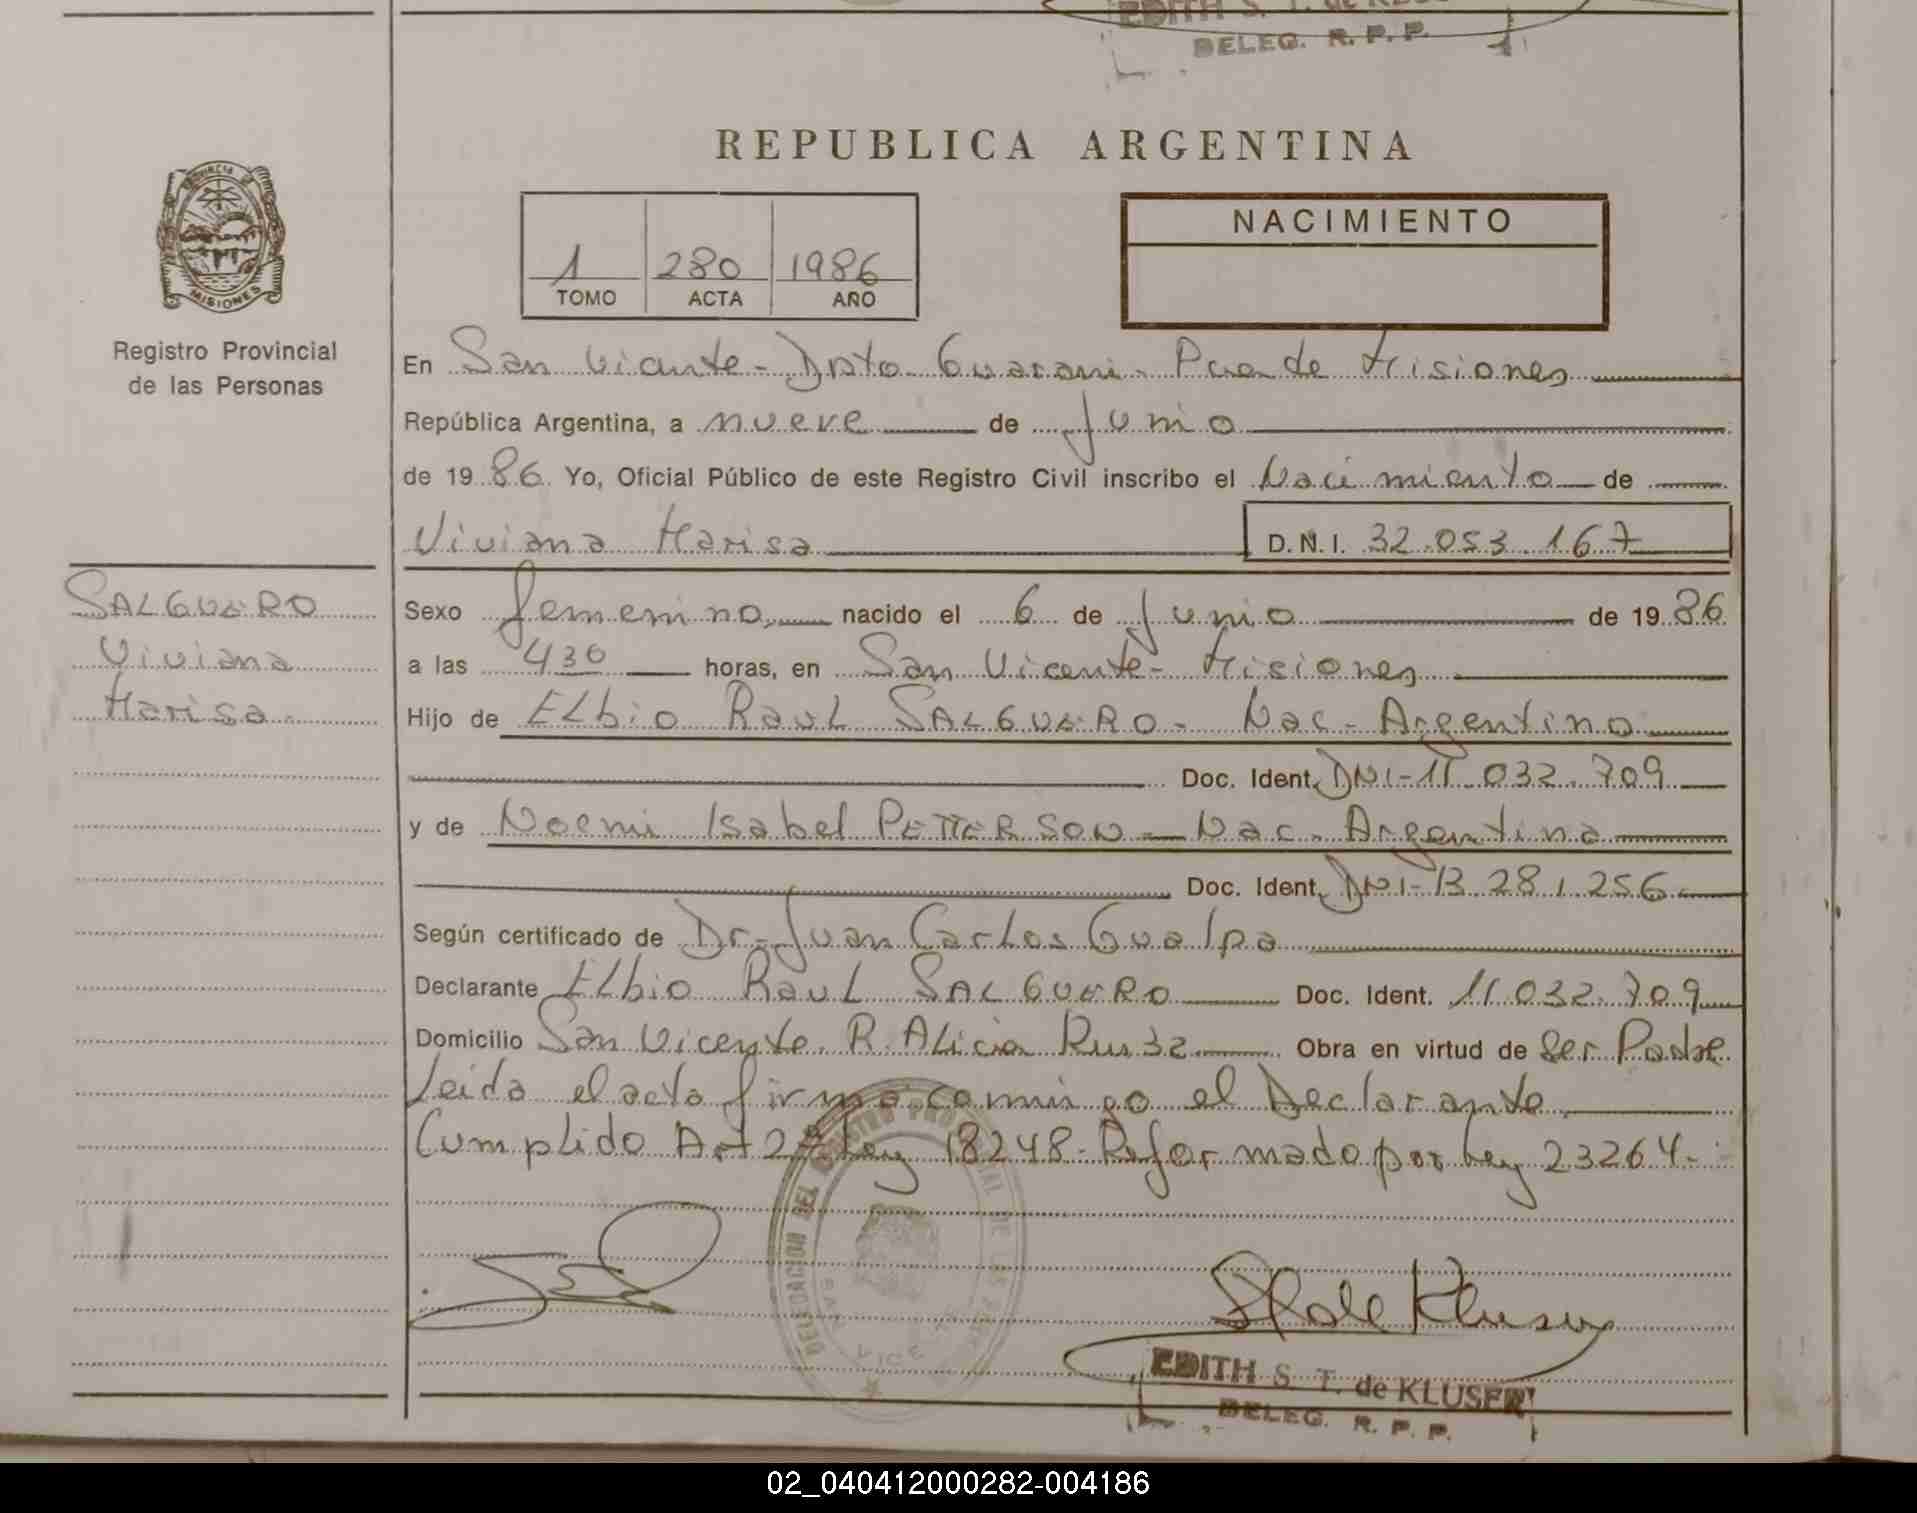 EDITH S. T. de KLUSER
DELEG. R. P. P.
REPUBLICA ARGENTINA
PROVINCIA DE
MISIONES
Registro Provincial
de las Personas
1 280 1986
TOMO ACTA AÑO
NACIMIENTO
En San Vicente - Dpto. Guarani - Pcia de Misiones
República Argentina, a nueve de Junio
de 1986 Yo, Oficial Público de este Registro Civil inscribo el Nacimiento de
Viviana Marisa D.N.I. 32.053.167
SALGUERO
Viviana
Marisa
Sexo femenino nacido el 6 de Junio de 1986
a las 4 30 horas, en San Vicente - Misiones
Hijo de Elbio Raul SALGUERO - Nac - Argentino
Doc. Ident. DNI - 11.032.709
y de Noemi Isabel PETTERSON - Nac. Argentina
Doc. Ident. DNI - 13.281.256
Según certificado de Dr. Juan Carlos Gualpa
Declarante Elbio Raul SALGUERO Doc. Ident. 11.032.709
Domicilio San Vicente. R. Alicia Ru Obra en virtud de Ser Padre
Leida el acta firma comigo el Declarante
Cumplido Art 2º Ley 18248 - Reformado por Ley 23264 -
DELEGACION DEL REGISTRO PROVINCIAL DE LAS PERS
SAN VICENTE
S T de Kluser
EDITH S. T. de KLUSER
DELEG. R. P. P.
02_040412000282-004186